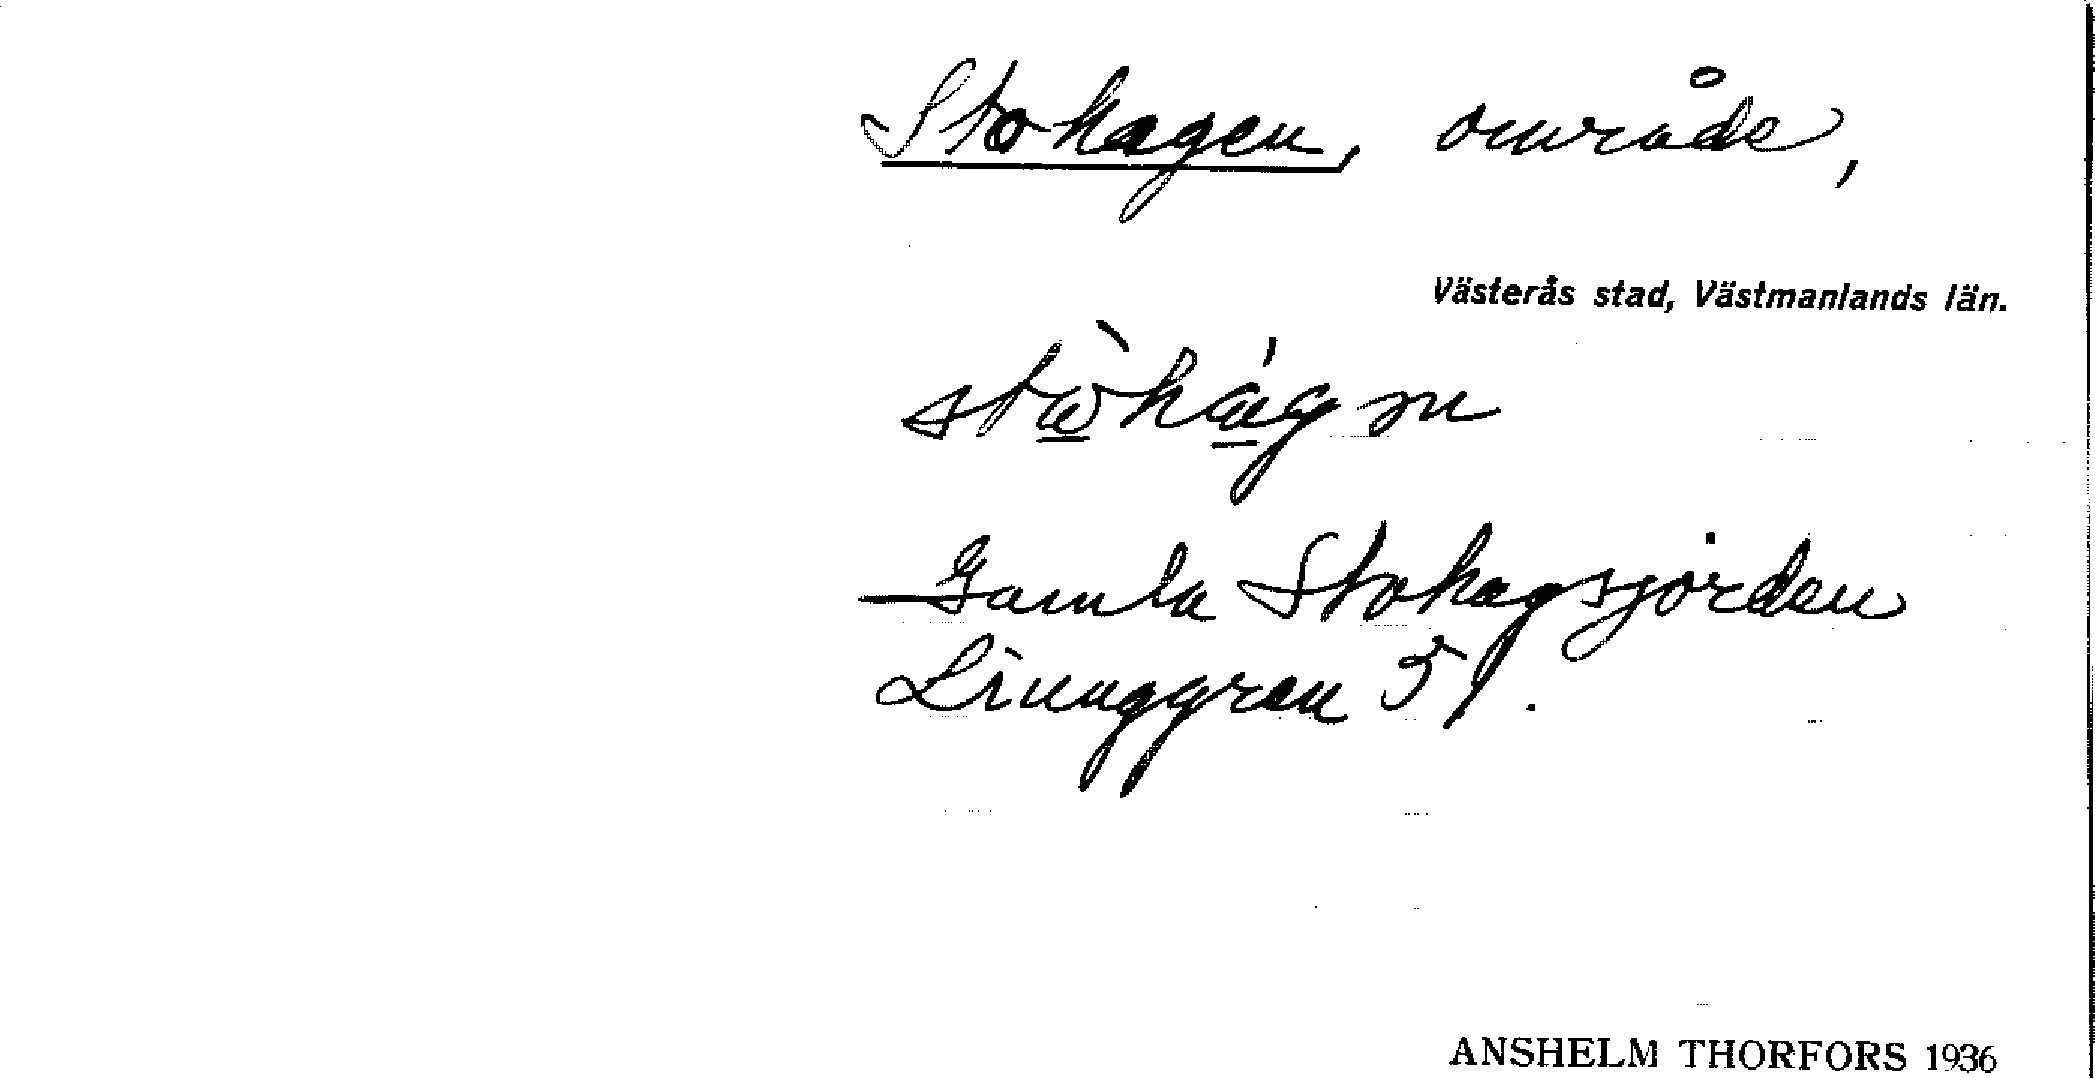 Stohagen, område,
Västerås stad, Västmanlands län.
Gamla Stohagsjorden
Linnggren 51.
ANSHELM THORFORS 1936